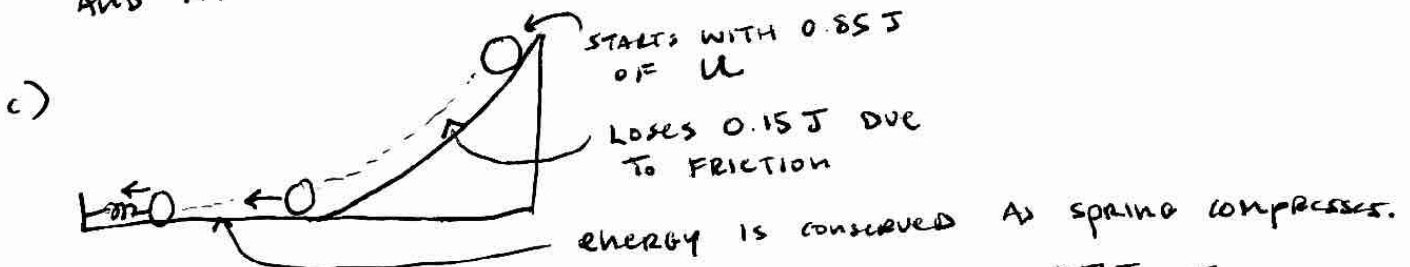 AND
STARTS WITH 0.85 J
OF U
c)
LOSES 0.15 J DUE
TO FRICTION
ENERGY IS CONSERVED AS SPRING COMPRESSES.